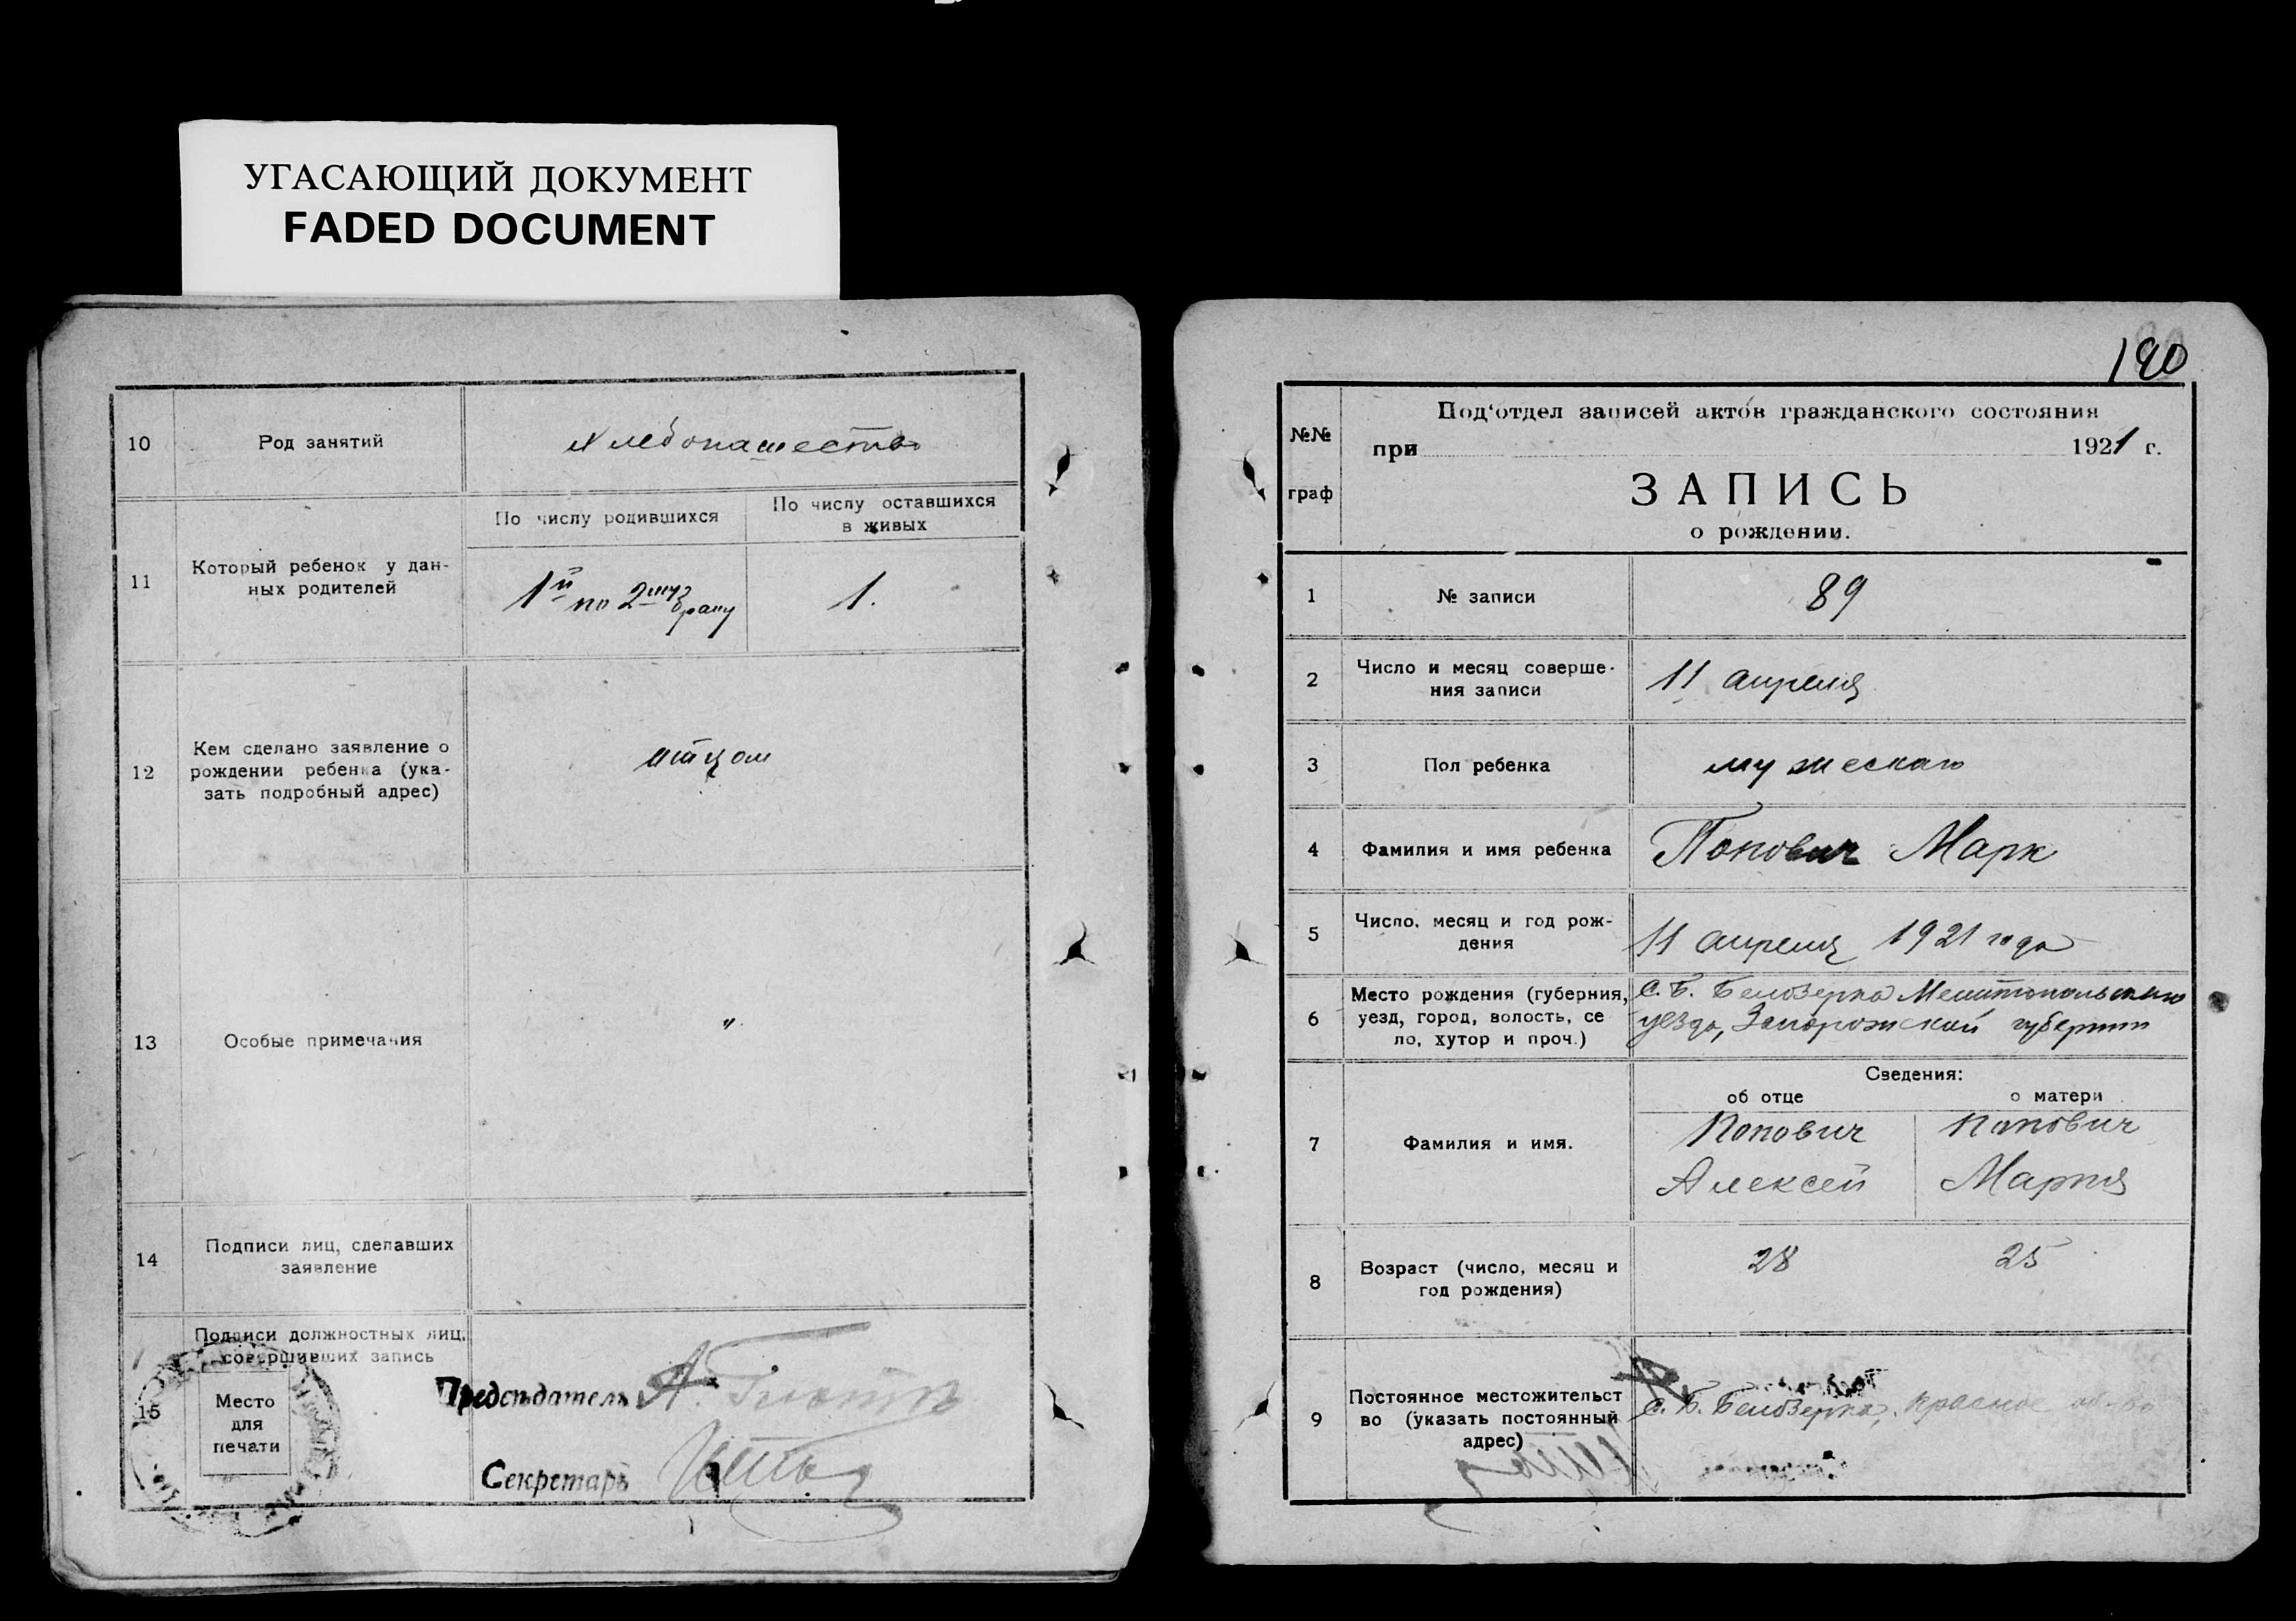 УГАСАЮЩИЙ ДОКУМЕНТ
FADED DOCUMENT
10
Род занятий
Хлебопашество
11
Который ребенок у дан-
ных родителей
По числу родившихся
По числу оставшихся
в живых
1й по 2му браку
1.
12
Кем сделано заявление о
рождении ребенка (ука-
зать подробный адрес)
отцом
13
Особые примечания
"
14
Подписи лиц, сделавших
заявление
15
Подписи должностных лиц,
совершивших запись
Место
для
печати
Председатель А.
Секретарь
190
№№
граф
Под'отдел записей актов гражданского состояния
при 1921 г.
ЗАПИСЬ
о рождении.
1
№ записи
89
2
Число и месяц соверше-
ния записи
11 апреля
3
Пол ребенка
мужескаго
4
Фамилия и имя ребенка
Попович Марк
5
Число, месяц и год рож-
дения
11 апреля 1921 года
6
Место рождения (губерния,
уезд, город, волость, се
ло, хутор и проч.)
С. Б. Белозерка Мелитопольскаго
уезда, Запорожской губернии
Сведения:
об отце
о матери
7
Фамилия и имя.
Попович
Алексей
Попович
Мария
8
Возраст (число, месяц и
год рождения)
28
25
9
Постоянное местожительст
во (указать постоянный
адрес)
С. Б. Белозерка, красное